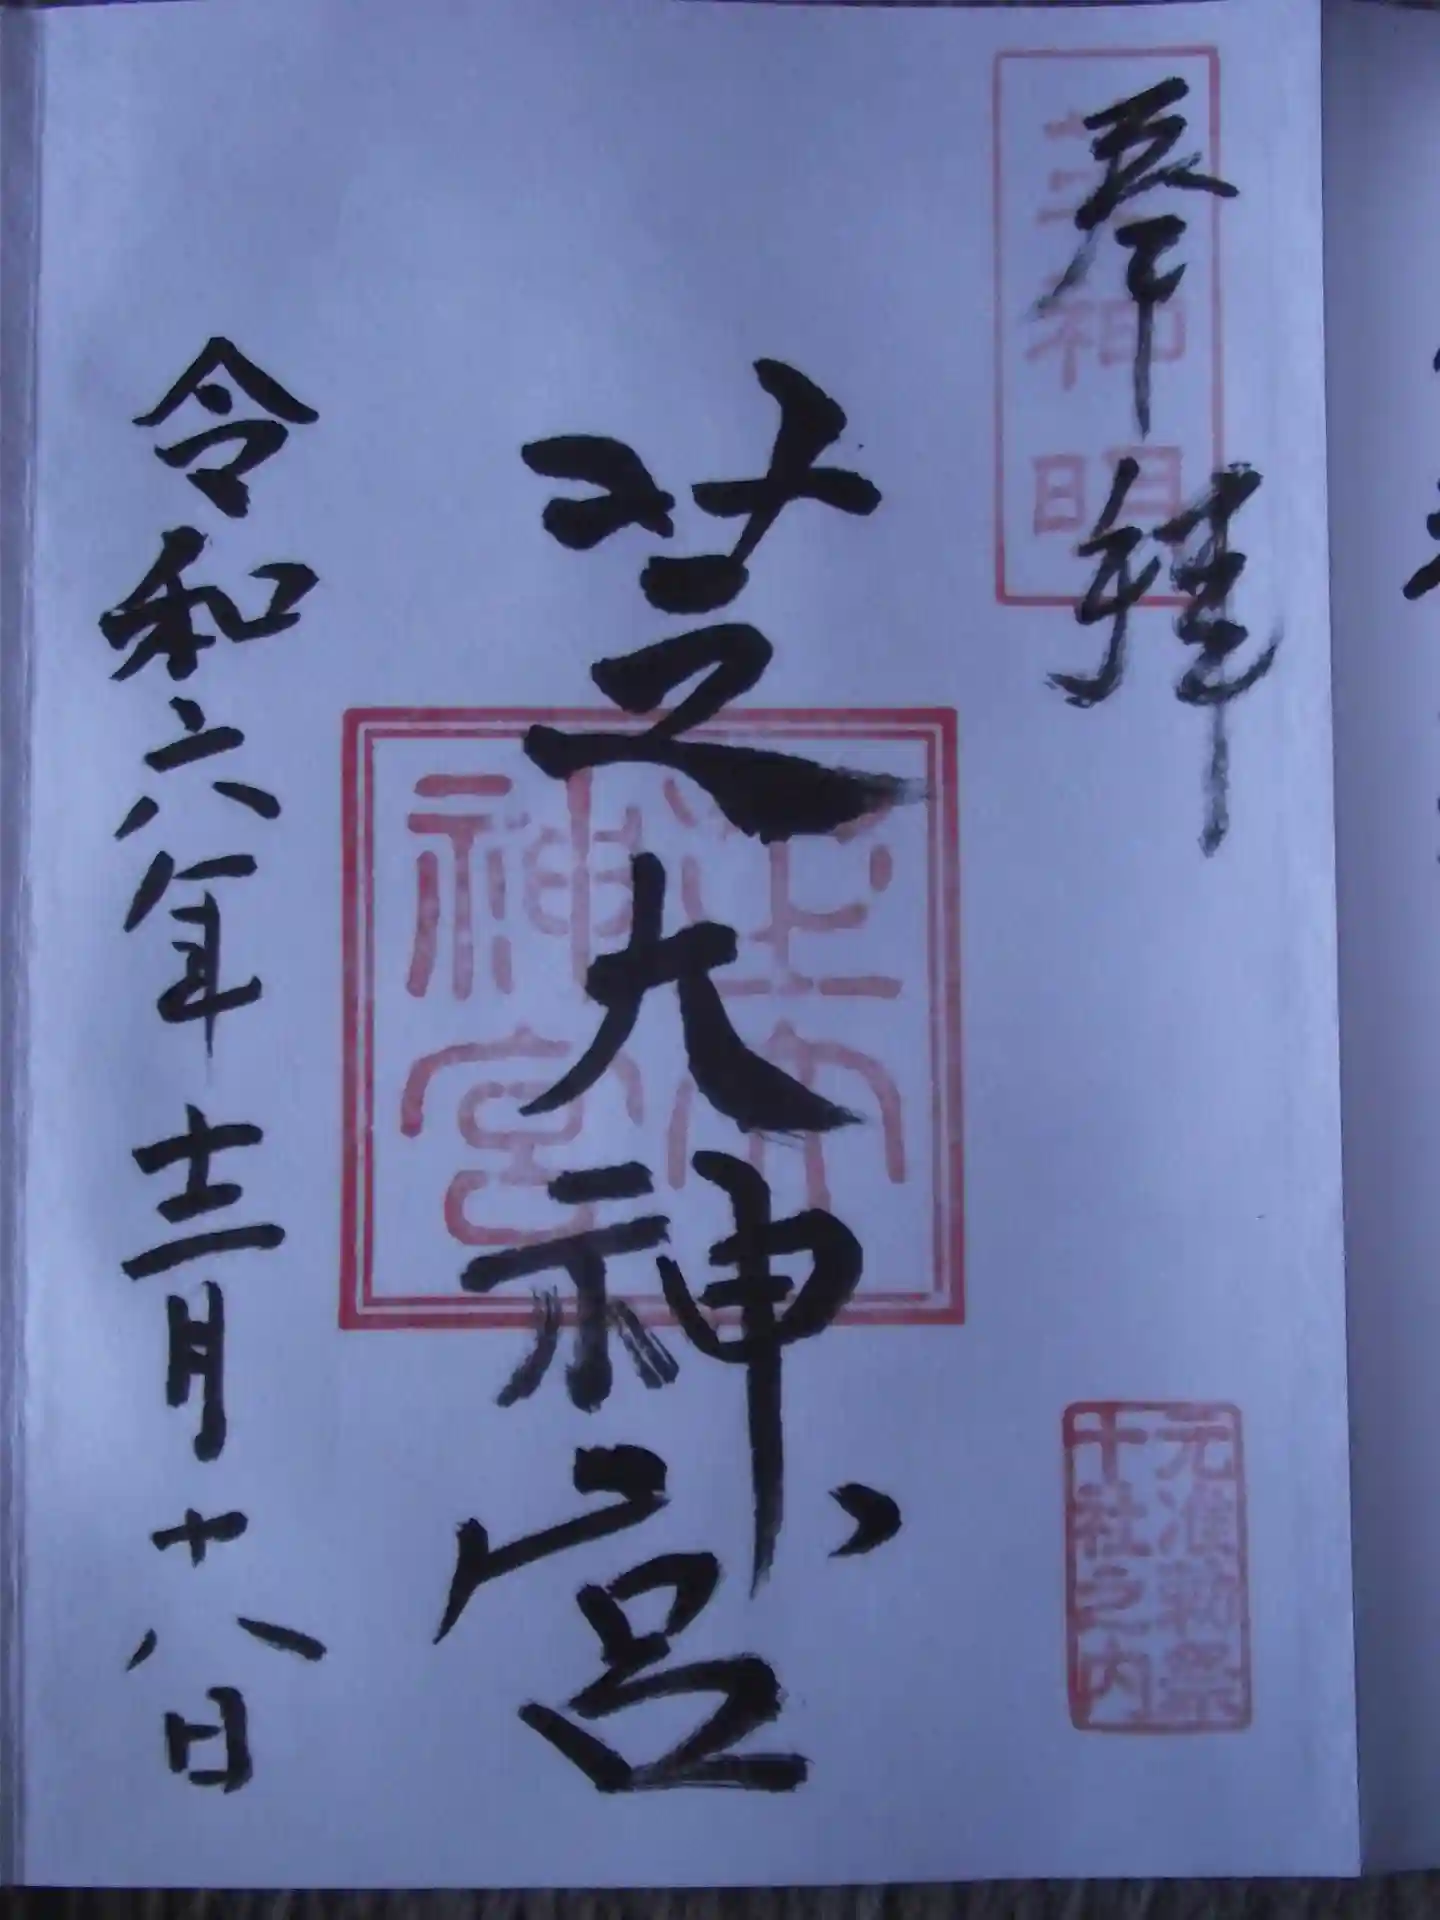 奉拝
芝神明
元准勅祭
十社之内
芝大神宮
芝大
神宮
令和六年十二月十八日